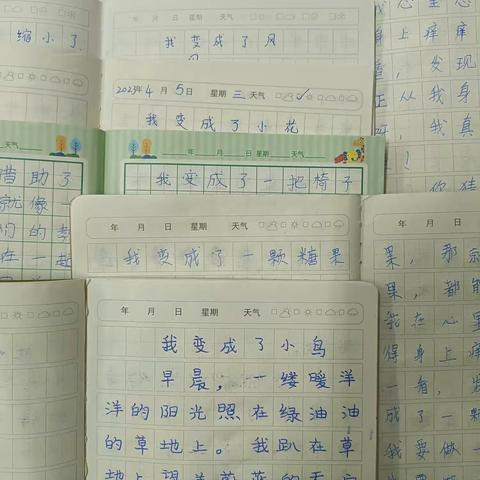 缩小了
年 月 日 星期 天气
我变成了风
2023年4月5日 星期三 天气
我变成了小花
天气
年 月 日 星期 天气
我变成了一把椅子
借助了
就像一
们的梦
在一起
身上痒痒
看，发现
正从我身
我真
年 月 日 星期 天气
我变成了一颗糖果
年 月 日 星期 天气
我变成了小鸟
早晨，一缕暖洋
洋的阳光照在绿油油
的草地上。我趴在草
地上望着蔚蓝的天空
果，那
果，都
我在心里
得身上痒
一看，发
成了一颗
我要做一